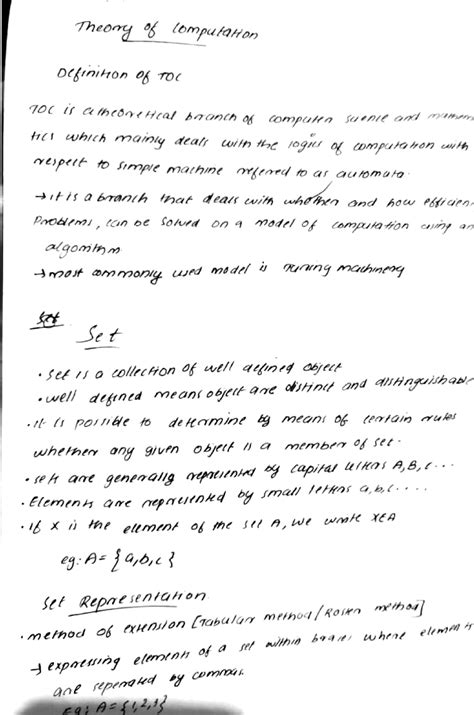 Theory of Computation
Definition of TOC
TOC is a theoretical branch of computer science and mathema
tics which mainly deals with the logics of computation with
respect to simple machine referred to as automata.
→ it is a branch that deals with whether and how efficien
Problems, can be solved on a model of computation using an
algorithm
→ most commonly used model is Turing machinery
Set
• Set is a collection of well defined object
• well defined means object are distinct and distinguishable
• it is possible to determine by means of certain rules
whether any given object is a member of set.
• sets are generally represented by capital letters A, B, C...
• Elements are represented by small letters a, b, c....
• if x is the element of the set A, we write x∈A
eg: A = {a,b,c}
Set Representation
• method of extension [Tabular method / Roster method]
→ expressing elements of a set within braces where elements
are seperated by commas.
eg: A = {1,2,3}